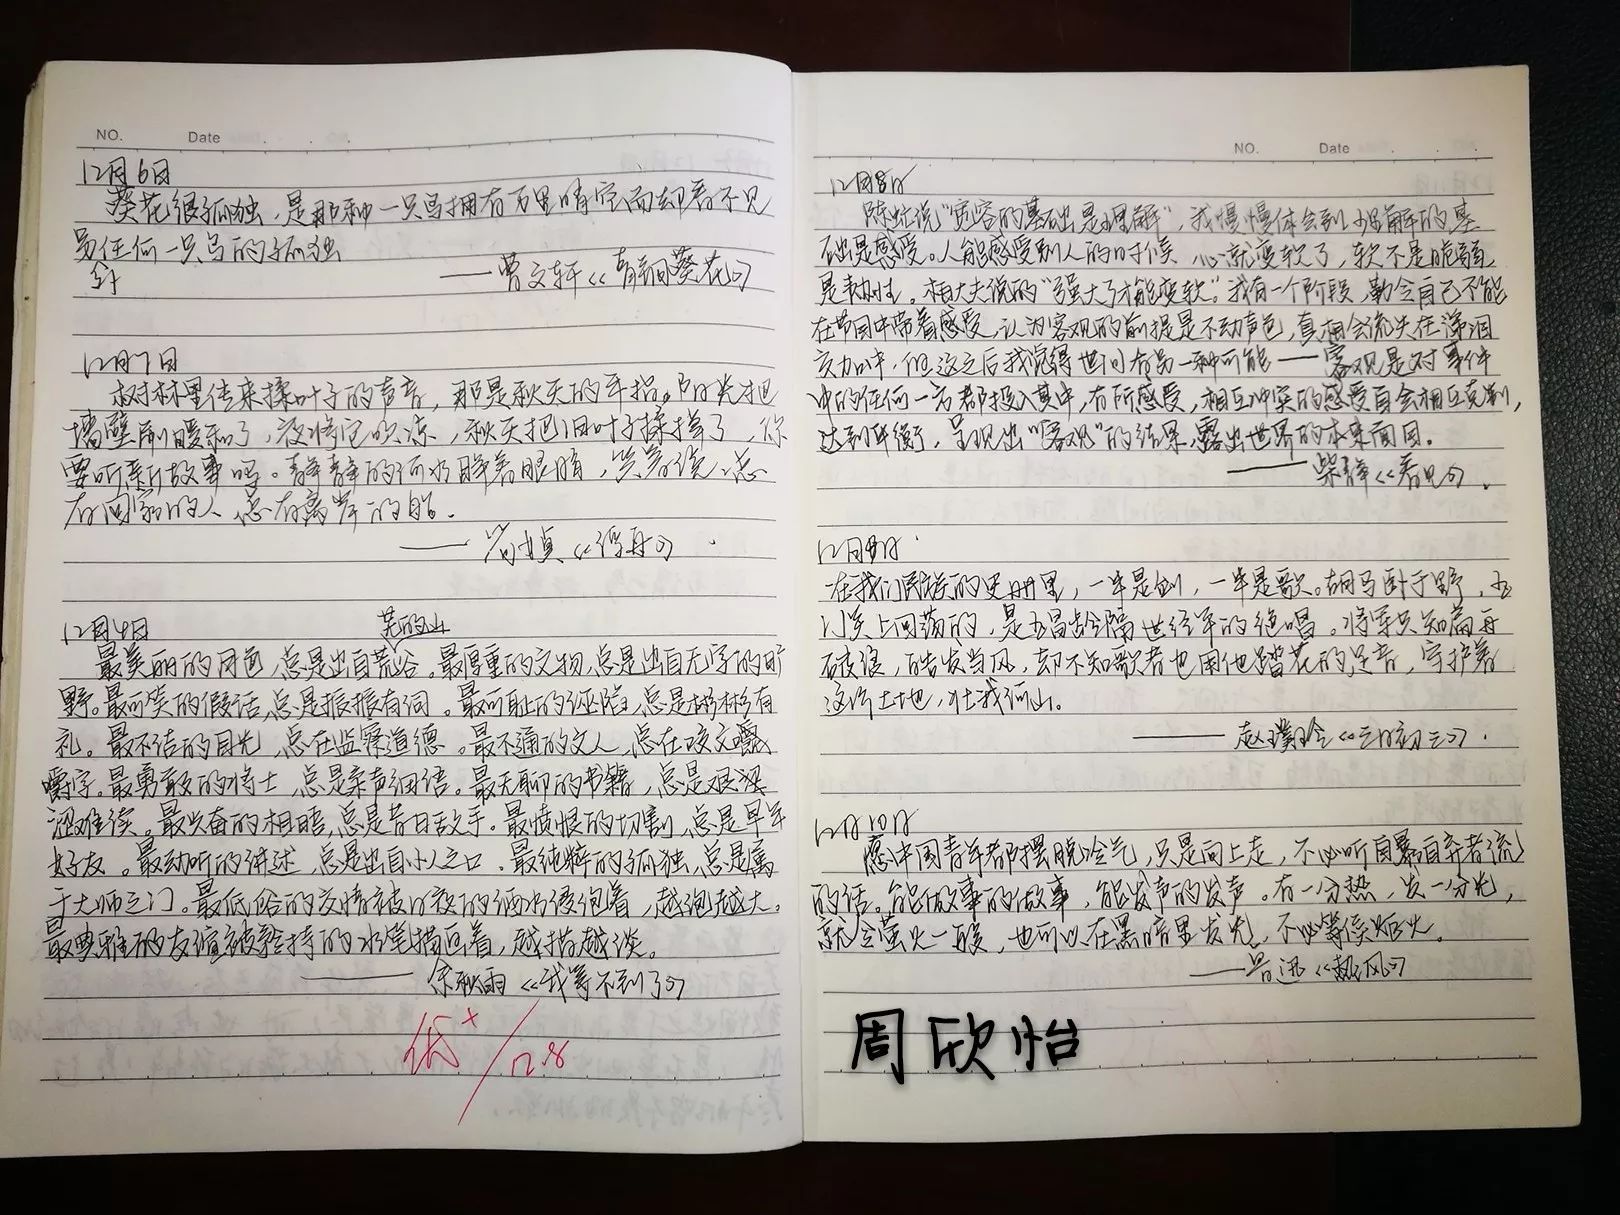 NO. Date
12月6日
葵花很孤独，是那种一只鸟拥有万里晴空而却看不见
另任何一只鸟的孤独
——曹文轩《青铜葵花》
12月7日
树林里传来揉叶子的声音，那是秋天的手指。阳光把
墙壁刷暖和了，夜将它吹凉，秋天把旧叶子揉掉了，你
要听新故事吗。静静的河水睁着眼睛，笑着说：总
有回家的人，总有离岸的船。
——简媜《浮舟》
12月4日
荒的山
最美丽的月色，总是出自荒谷。最厚重的文物，总是出自无字的旷
野。最可笑的假话，总是振振有词。最可耻的诬陷，总是彬彬有
礼。最不洁的目光，总在监察道德。最不通的文人，总在咬文嚼
嚼字。最勇敢的将士，总是柔声细语。最无聊的书籍，总是艰深
涩难读。最兴奋的相晤，总是昔日敌手。最愤恨的切割，总是早年
好友。最动听的讲述，总是出自小人之口。最纯粹的孤独，总是属
于大师之门。最低俗的友情被以软的酒水浸泡着，越泡越大。
最典雅的友谊被矜持的水笔描画着，越描越淡。
——余秋雨《我等不到了》
优+/12.8
NO. Date
12月8日
陈虻说“宽容的基础是理解”，我慢慢体会到，理解的基
础是感受。人能感受别人的时候，心就变软了，软不是脆弱，
是韧性。相夫说的“强大了才能变软”。我有一个阶段，勒令自己不能
在节目中带着感受，认为客观的前提是不动声色，真相会流失在涕泪
交加中，但这之后我觉得世间有另一种可能——客观是对事件
中的任何一方都投入其中，有所感受，相互冲突的感受自会相互克制，
达到平衡，呈现出“客观”的结果，露出世界的本来面目。
——柴静《看见》.
12月9日
在我们民族的史册里，一半是剑，一半是歌。胡马卧于野，玉
门关上回荡的，是五昌龄隔世经年的绝唱。将军只知高舟
破浪，皓发当风，却不知歌者也用他踏花的足音，守护着
这片土地，壮我河山。
12月10日
愿中国青年都摆脱冷气，只是向上走，不必听自暴自弃者流
的话。能做事的做事，能发声的发声。有一分热，发一分光，
就令萤火一般，也可以在黑暗里发光，不必等候炬火。
——鲁迅《热风》
周欣怡